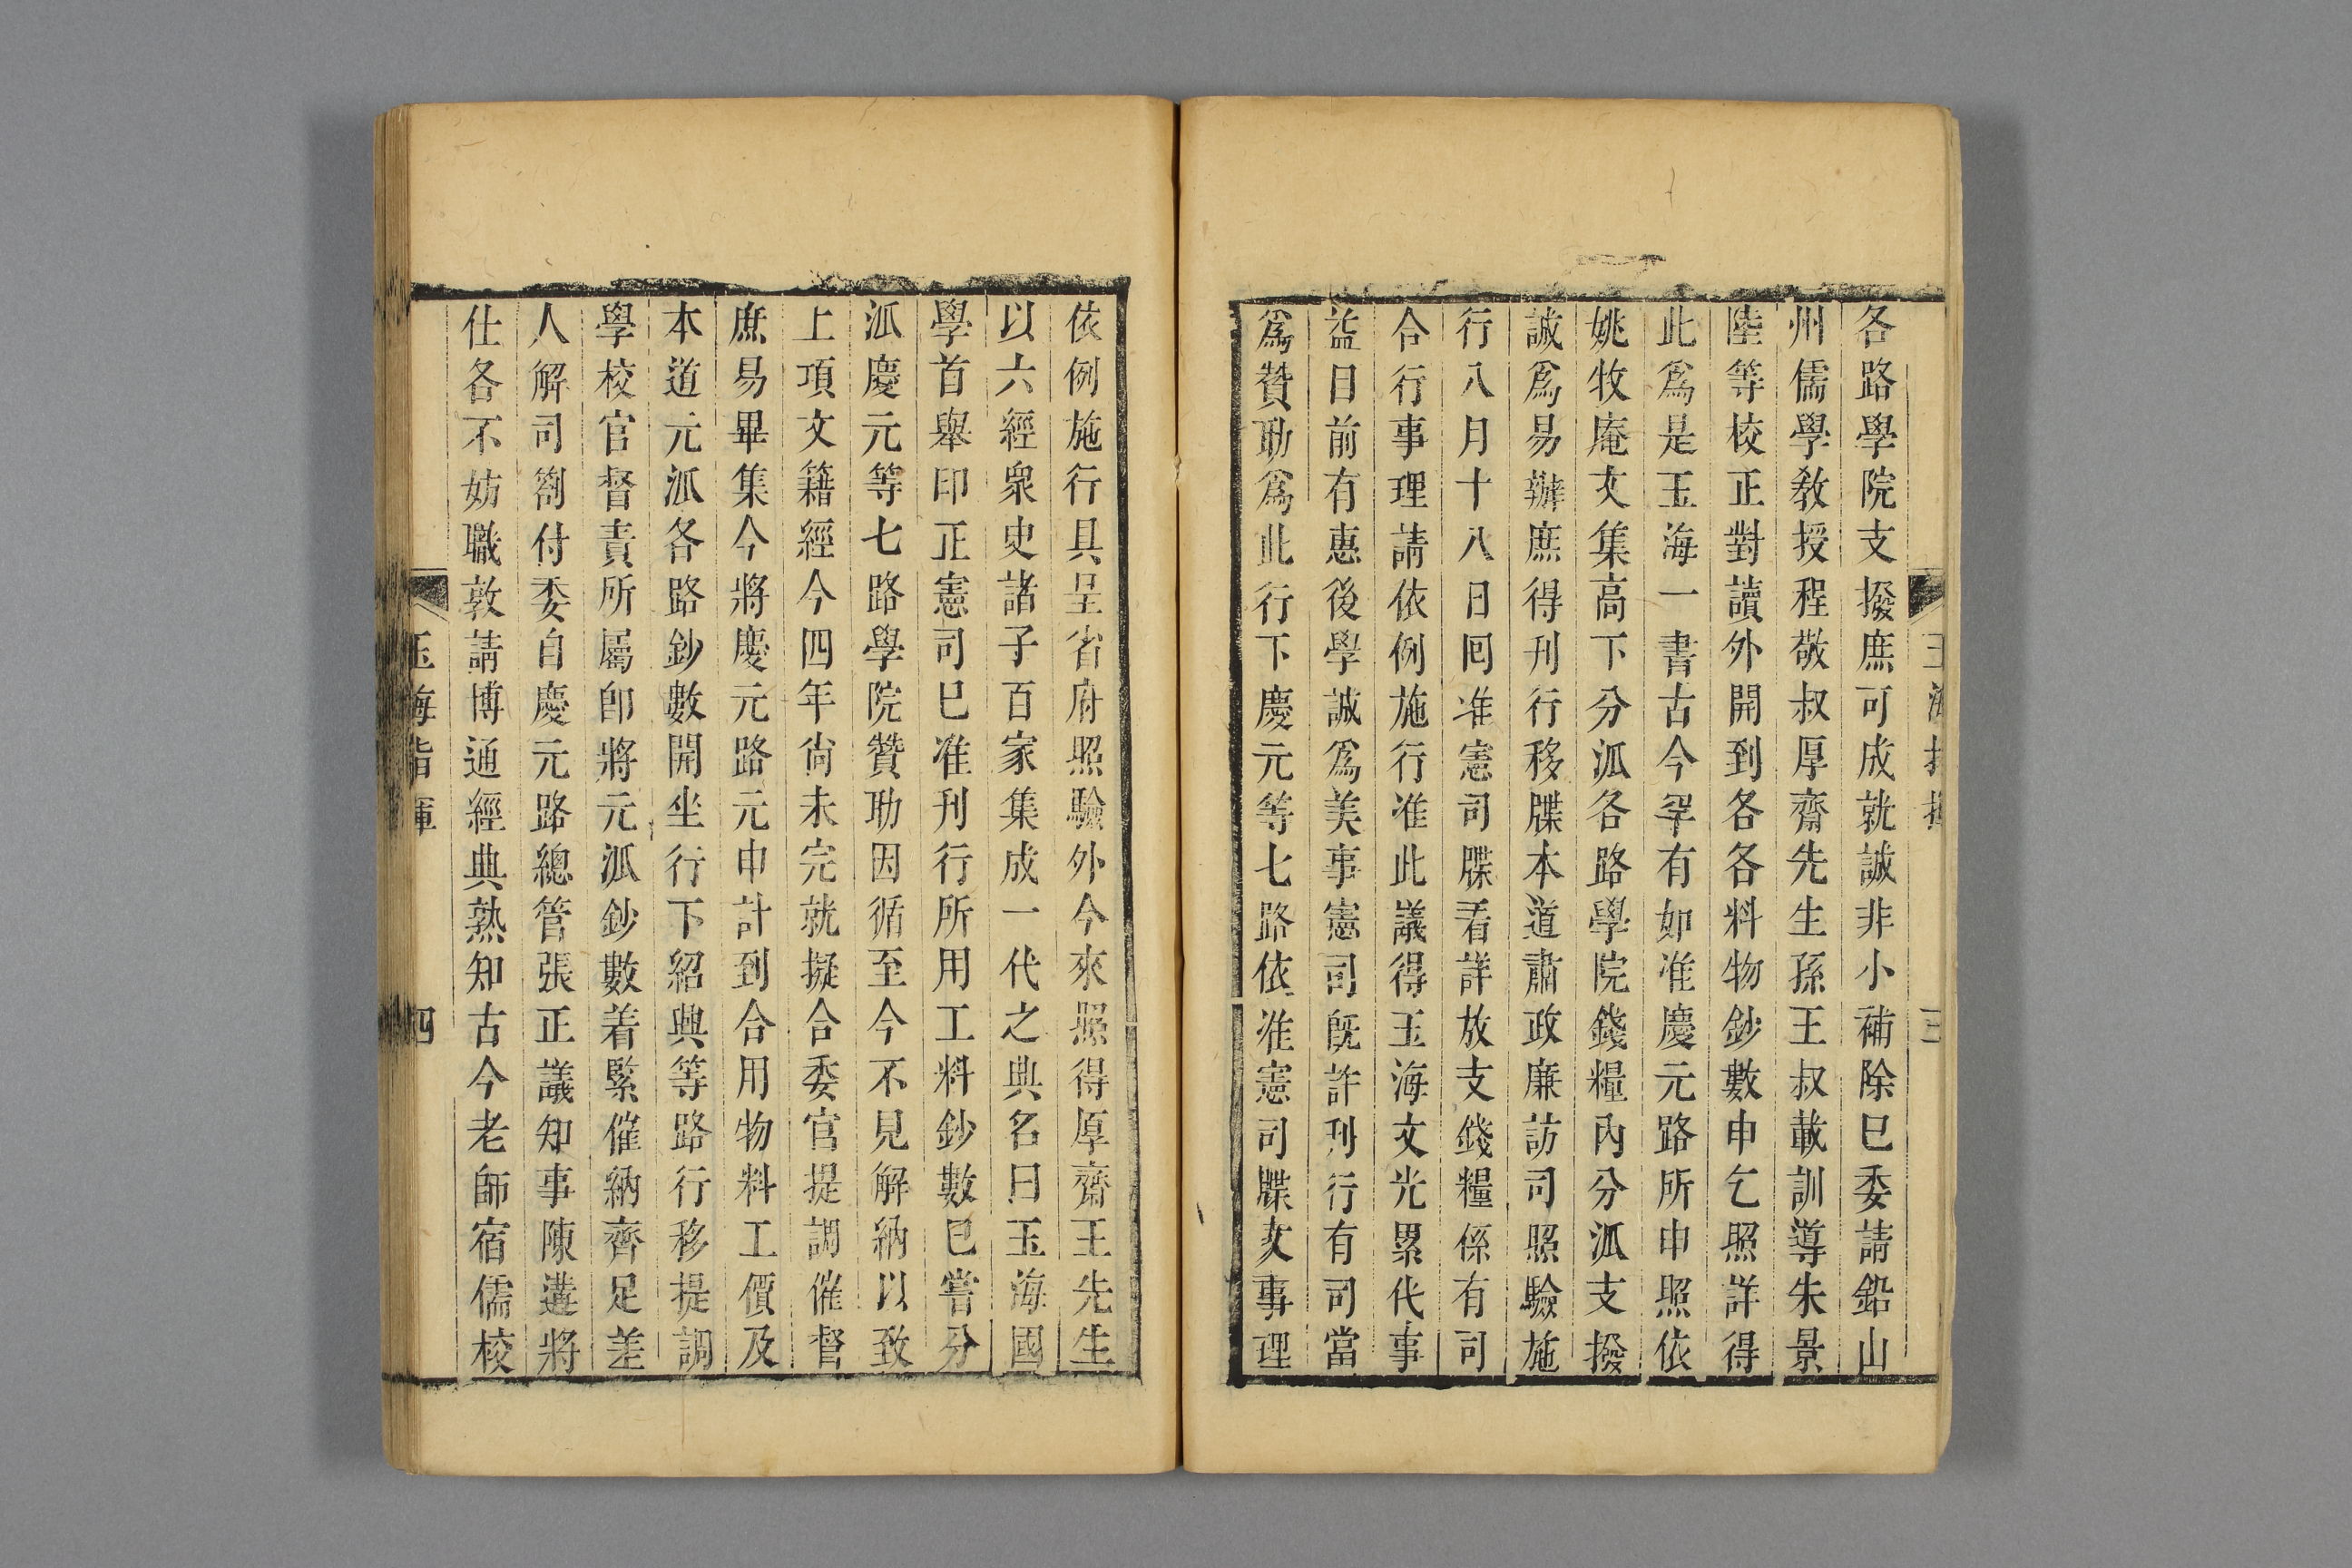 各路學院支撥庶可成就誠非小補除巳委請鉛山
州儒學教授程敬叔厚齋先生孫王叔載訓導朱景
陸等校正對讀外開到各各料物鈔數申乞照詳得
此爲是玉海一書古今罕有如准慶元路所申照依
姚牧庵文集高下分派各路學院錢糧內分派支撥
誠爲易辦庶得刊行移牒本道肅政廉訪司照驗施
行八月十八日囘准憲司牒看詳放支錢糧係有司
合行事理請依例施行准此議得玉海文光累代事
益日前有惠後學誠爲美事憲司旣許刋行有司當
爲贊助爲此行下慶元等七路依准憲司牒文事理
依例施行具呈省府照驗外今來照得厚齋王先生
以六經衆史諸子百家集成一代之典名曰玉海國
學首舉印正憲司巳准刊行所用工料鈔數巳嘗分
派慶元等七路學院贊助因循至今不見解納以致
上項文籍經今四年尙未完就擬合委官提調催督
庶易畢集今將慶元路元申計到合用物料工價及
本道元派各路鈔數開坐行下紹興等路行移提調
學校官督責所屬卽將元派鈔數着緊催納齊足差
人解司劄付委自慶元路總管張正議知事陳遘將
仕各不妨職敦請博通經典熟知古今老師宿儒校
玉海指揮 四